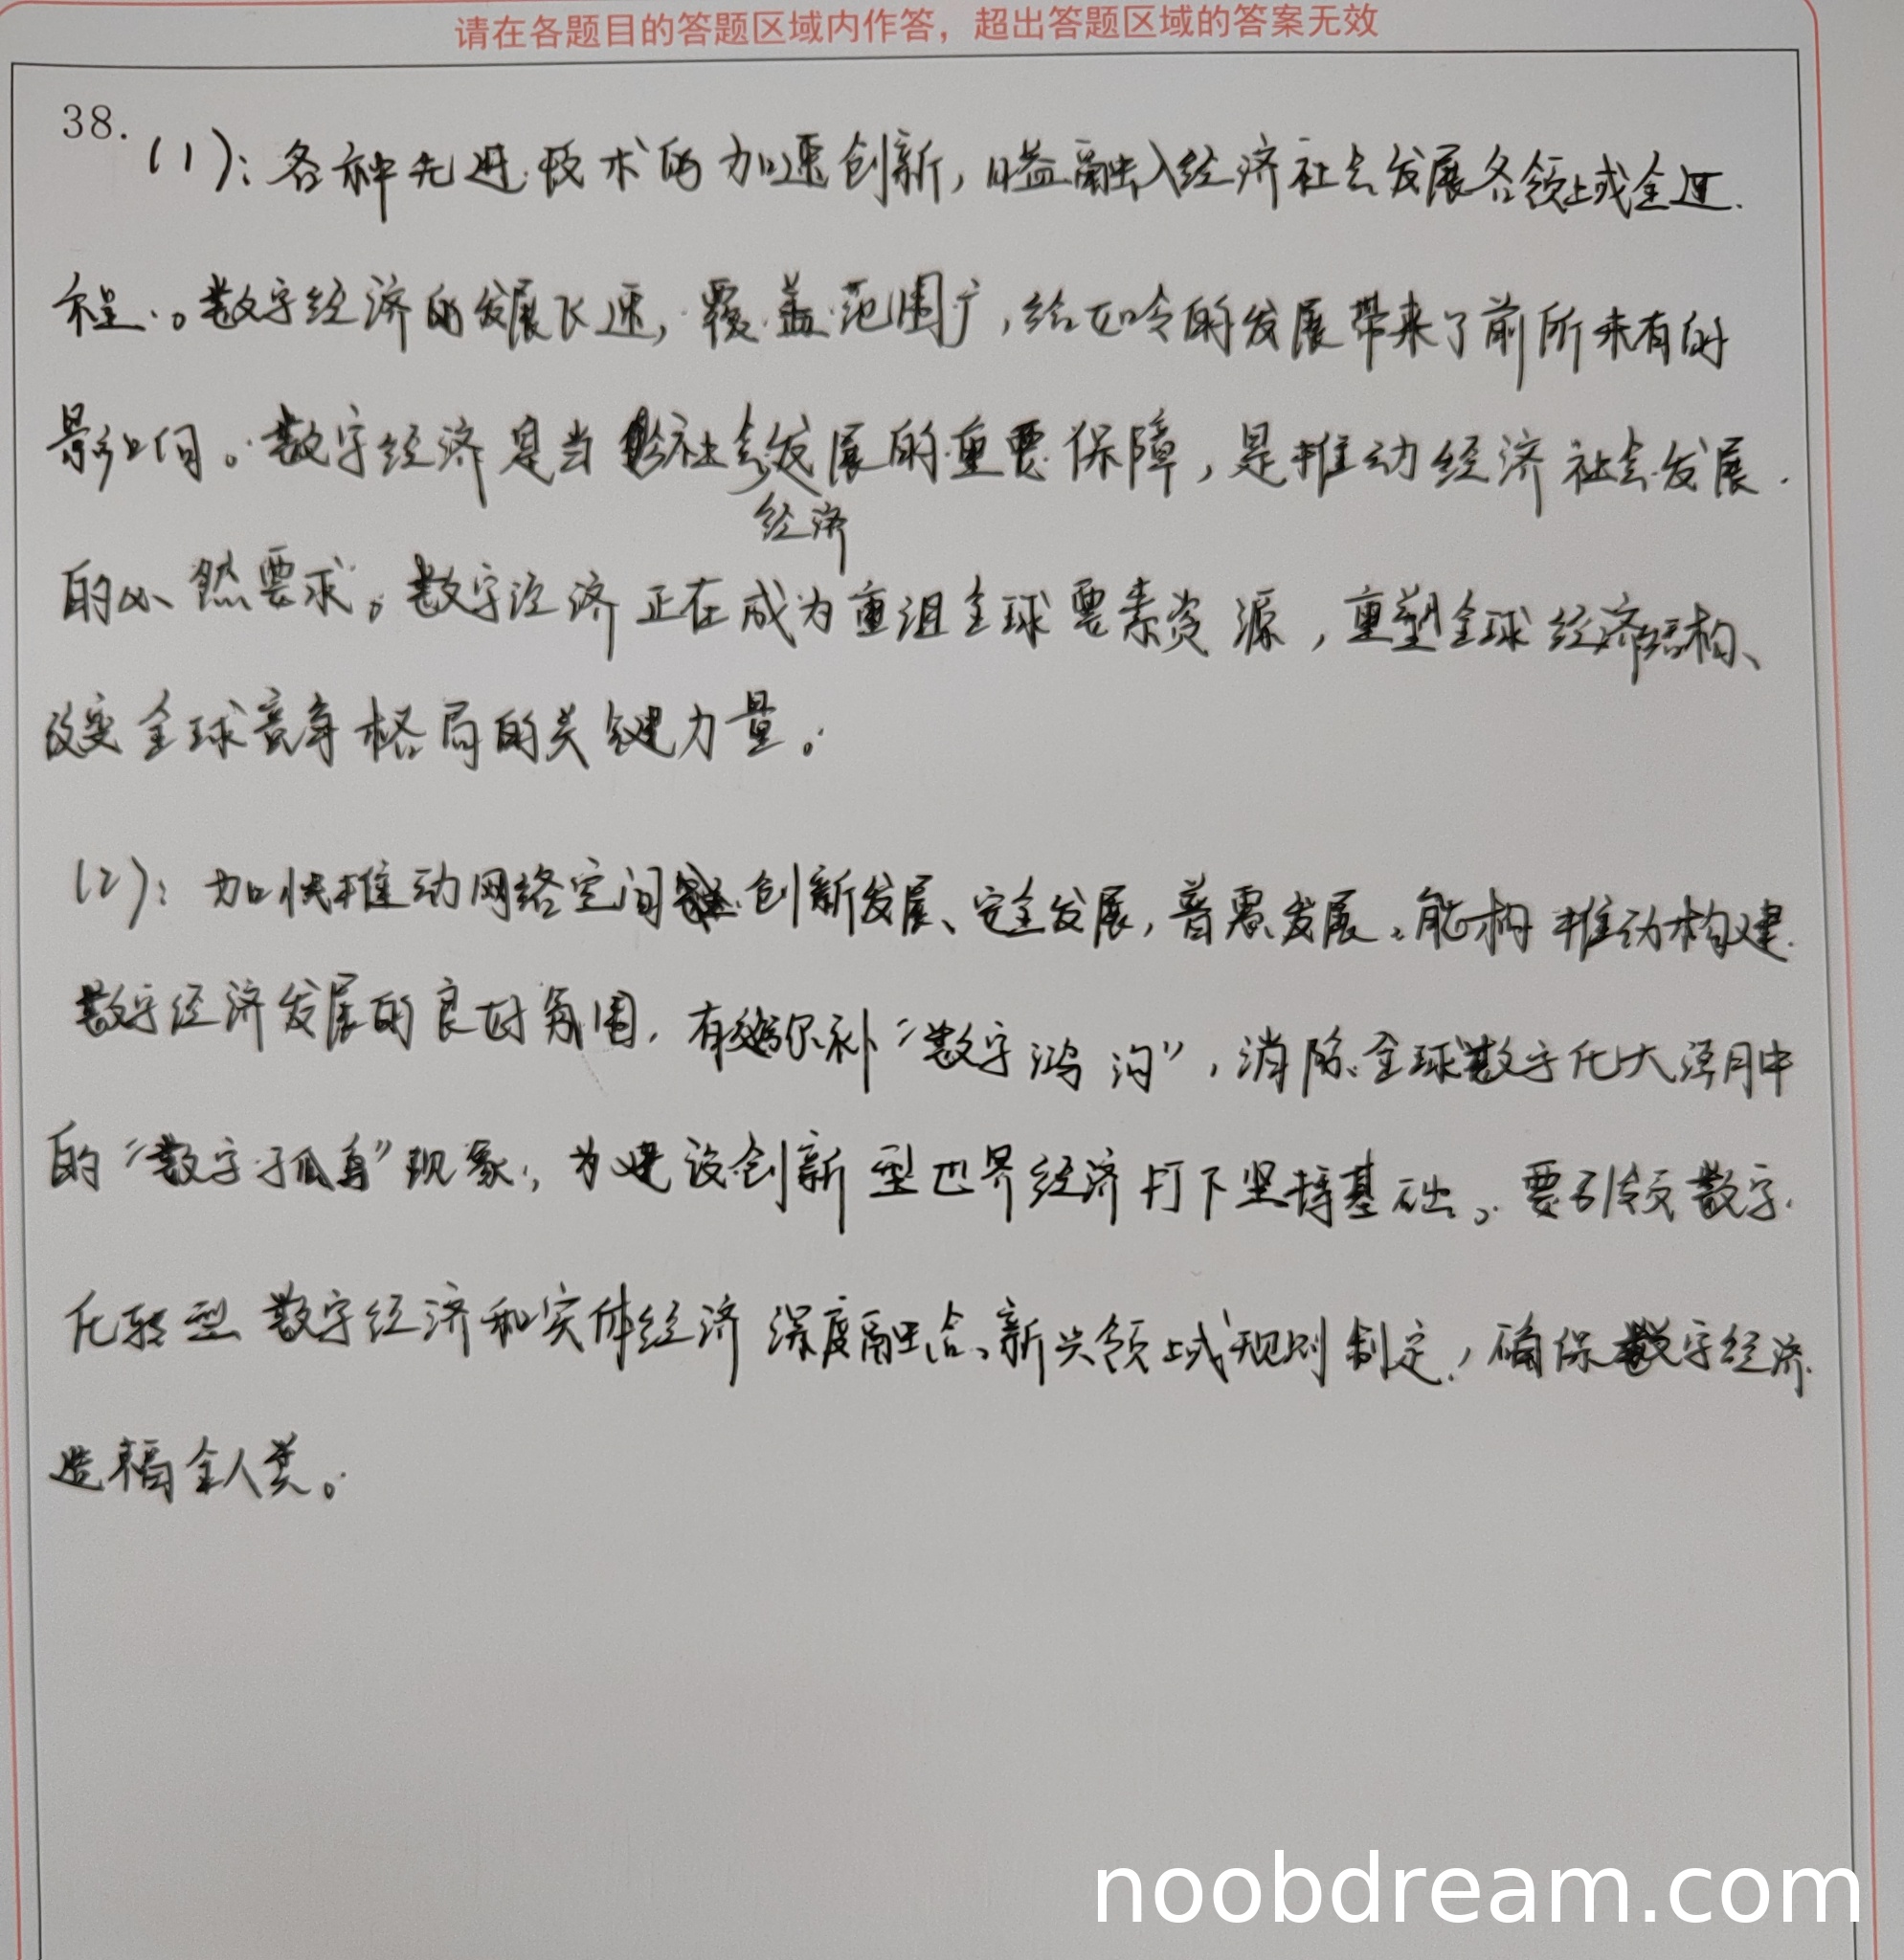 请在各题目的答题区域内作答，超出答题区域的答案无效
38. (1)：各种先进技术的加速创新，日益融入经济社会发展各领域全过
程。数字经济的发展飞速，覆盖范围广，给如今的发展带来了前所未有的
影响。数字经济是当社会发展的重要保障，是推动经济社会发展
经济
的必然要求。数字经济正在成为重组全球要素资源，重塑全球经济结构、
改变全球竞争格局的关键力量。
(2)：加快推动网络空间创新发展、安全发展，普惠发展。能构推动构建
数字经济发展的良好氛围，有效弥补“数字鸿沟”，消除全球数字化大潮中
的“数字孤岛”现象，为建设创新型世界经济打下坚持基础。要引领数字
化转型、数字经济和实体经济深度融合、新兴领域规则制定，确保数字经济
造福全人类。
noobdream.com